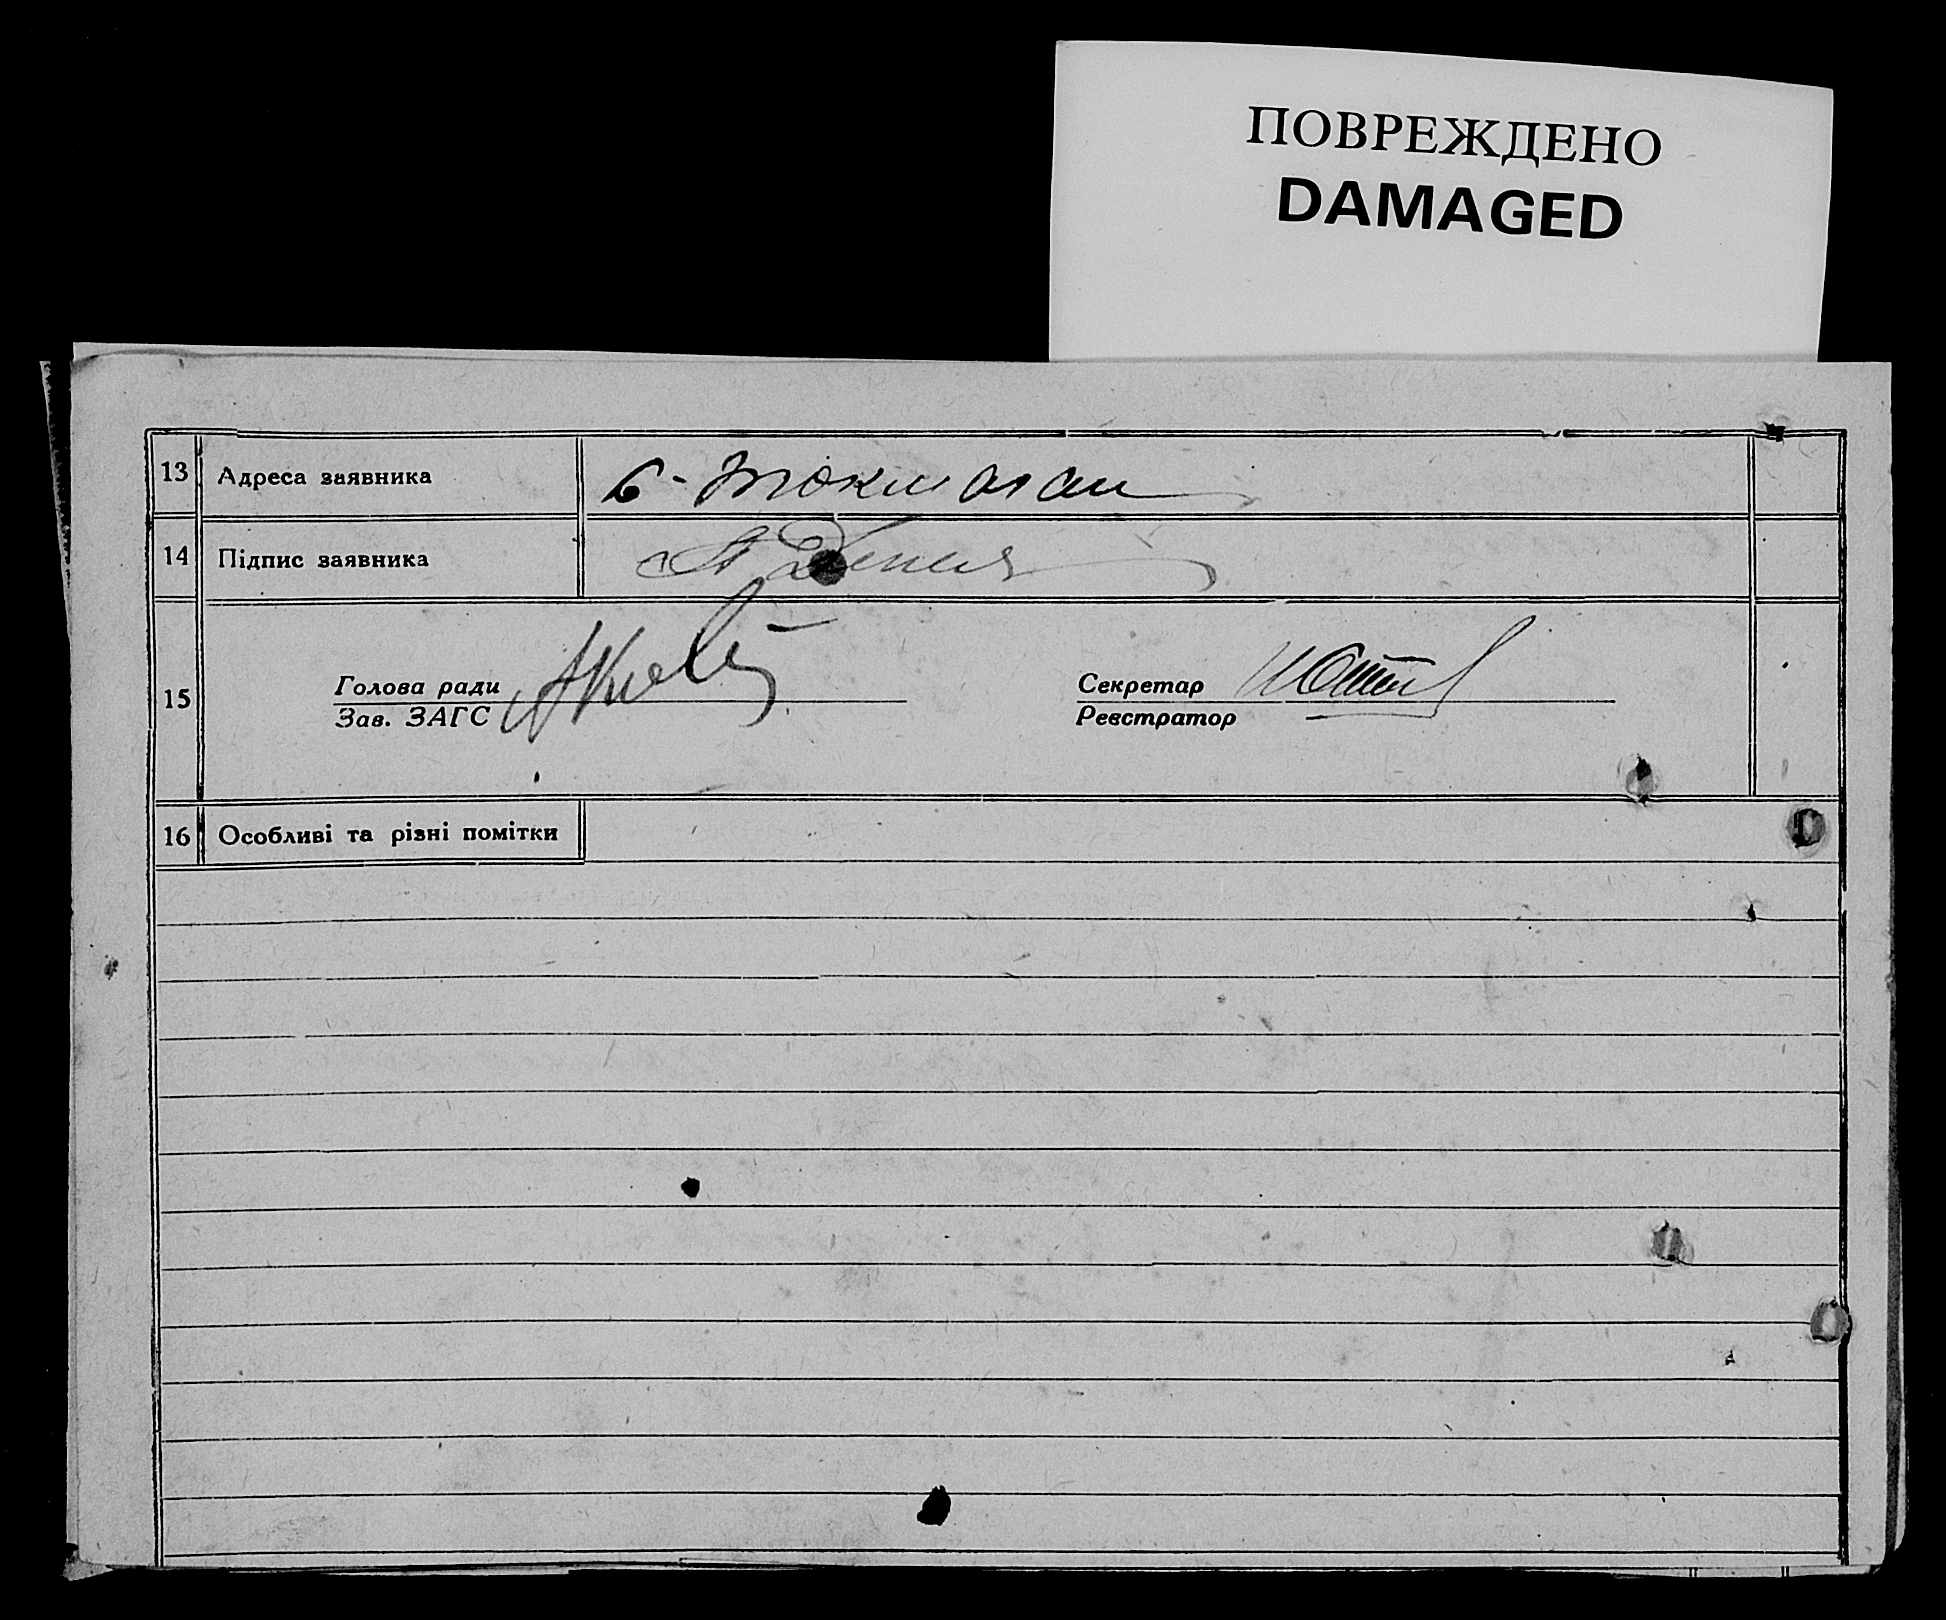 ПОВРЕЖДЕНО
DAMAGED
13 Адреса заявника
14 Підпис заявника
15
Голова ради
Зав. ЗАГС
Секретар
Реєстратор
16 Особливі та різні помітки